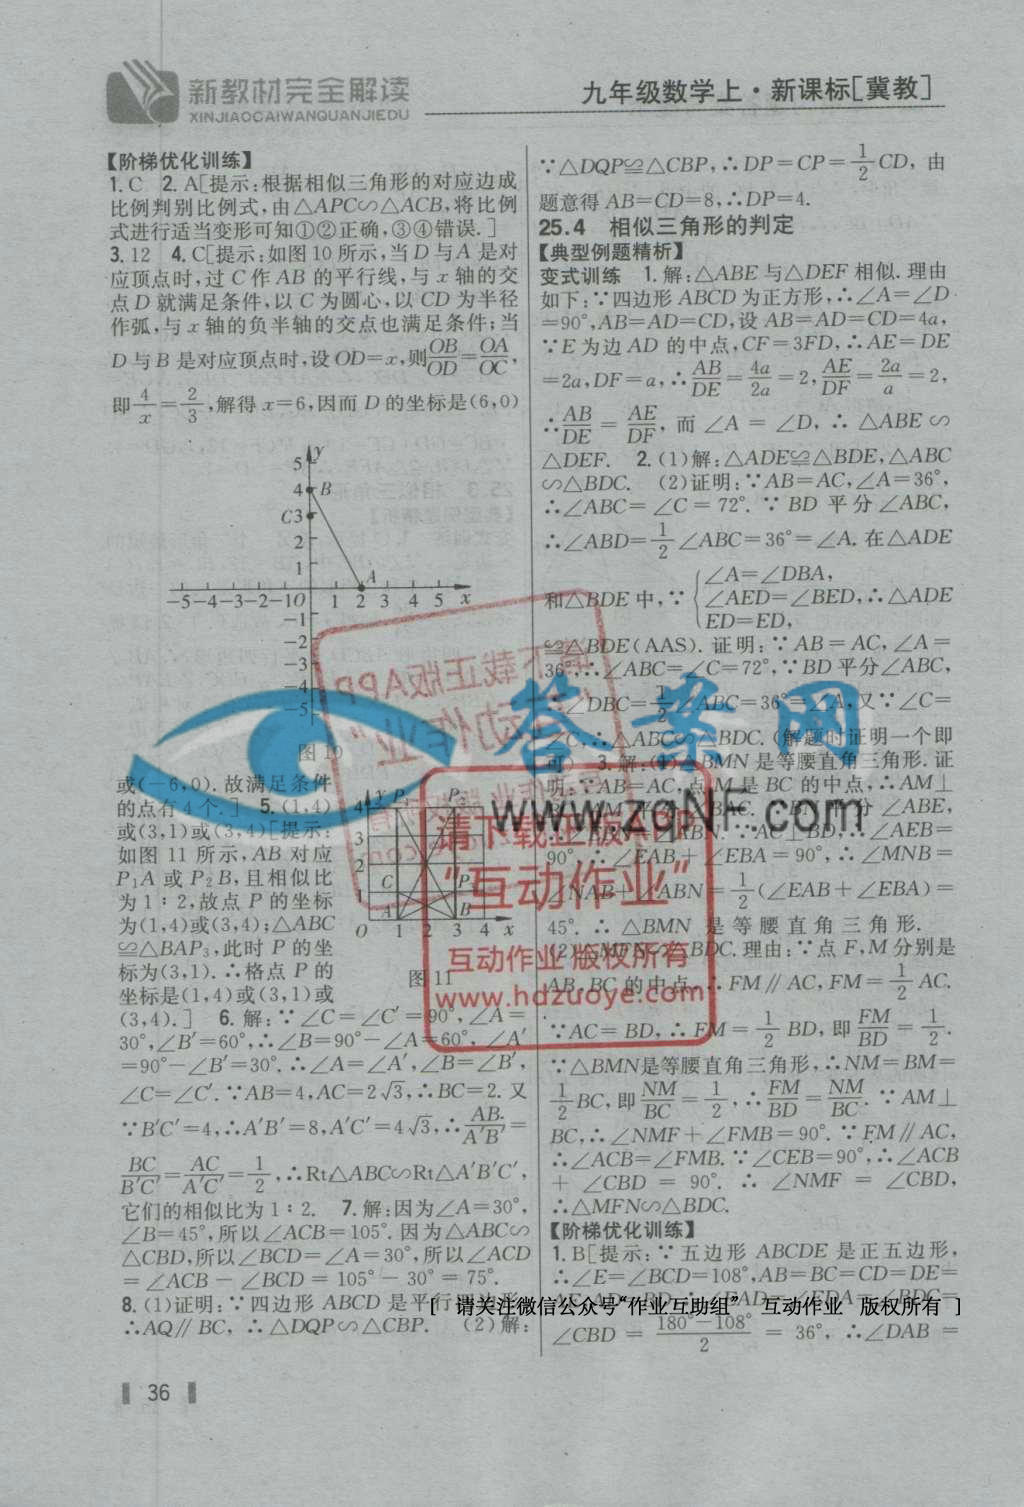 新教材完全解读
XINJIAOCAIWANQUANJIEDU
九年级数学上·新课标[冀教]
【阶梯优化训练】
1. C 2. A[提示:根据相似三角形的对应边成
比例判别比例式,由△APC∽△ACB,将比例
式进行适当变形可知①②正确,③④错误.]
3. 12 4. C[提示:如图 10 所示,当 D 与 A 是对
应顶点时,过 C 作 AB 的平行线,与 x 轴的交
点 D 就满足条件,以 C 为圆心,以 CD 为半径
作弧,与 x 轴的负半轴的交点也满足条件;当
D 与 B 是对应顶点时,设 OD=x,则OB/OD=OA/OC,
即4/x=2/3,解得 x=6,因而 D 的坐标是(6,0)
y
5
4 B
C3
2
1
A
-5-4-3-2-1O 1 2 3 4 5 x
-1
-2
-3
-4
-5
图 10
或(-6,0). 故满足条件
的点有 4 个.] 5. (1,4)
或(3,1)或(3,4)[提示:
如图 11 所示,AB 对应
P₁A 或 P₂B,且相似比
为 1∶2,故点 P 的坐标
为(1,4)或(3,4);△ABC
≌△BAP₃,此时 P 的坐
标为(3,1). ∴格点 P 的
坐标是(1,4)或(3,1)或
(3,4).] 6. 解:∵∠C=∠C′=90°,∠A=
4 y P₁ P₂
3
2
C P₃
1
A B
O 1 2 3 4 x
图 11
30°,∠B′=60°,∴∠B=90°-∠A=60°,∠A′
=90°-∠B′=30°. ∴∠A=∠A′,∠B=∠B′,
∠C=∠C′. ∵AB=4,AC=2√3,∴BC=2. 又
∵B′C′=4,∴A′B′=8,A′C′=4√3,∴AB/A′B′=
BC/B′C′=AC/A′C′=1/2,∴Rt△ABC∽Rt△A′B′C′,
它们的相似比为 1∶2. 7. 解:因为∠A=30°,
∠B=45°,所以∠ACB=105°. 因为△ABC∽
△CBD,所以∠BCD=∠A=30°,所以∠ACD
=∠ACB-∠BCD=105°-30°=75°.
8. (1)证明:∵四边形 ABCD 是平行四边形,
∴AQ∥BC,∴△DQP∽△CBP. (2)解:
∵△DQP≌△CBP,∴DP=CP=1/2CD,由
题意得 AB=CD=8,∴DP=4.
25.4 相似三角形的判定
【典型例题精析】
变式训练 1. 解:△ABE 与△DEF 相似. 理由
如下:∵四边形 ABCD 为正方形,∴∠A=∠D
=90°,AB=AD=CD,设 AB=AD=CD=4a,
∵E 为边 AD 的中点,CF=3FD,∴AE=DE
=2a,DF=a,∴AB/DE=4a/2a=2,AE/DF=2a/a=2,
∴AB/DE=AE/DF,而∠A=∠D,∴△ABE∽
△DEF. 2. (1)解:△ADE≌△BDE,△ABC
∽△BDC. (2)证明:∵AB=AC,∠A=36°,
∴∠ABC=∠C=72°. ∵BD 平分∠ABC,
∴∠ABD=1/2∠ABC=36°=∠A. 在△ADE
和△BDE 中,∵{∠A=∠DBA, ∠AED=∠BED, ED=ED, ∴△ADE
≌△BDE(AAS). 证明:∵AB=AC,∠A=
36°,∴∠ABC=∠C=72°,∵BD 平分∠ABC,
∴∠DBC=1/2∠ABC=36°=∠A,又∵∠C=
∠C,∴△ABC∽△BDC. (解题时证明一个即
可) 3. 解:(1)△BMN 是等腰直角三角形. 证
明:∵AB=AC,点 M 是 BC 的中点,∴AM⊥
∠ABE,
BD,∴∠AEB=
90°,∴∠EAB+∠EBA=90°,∴∠MNB=
∠NAB+∠ABN=1/2(∠EAB+∠EBA)=
45°. ∴△BMN 是等腰直角三角形.
(2)△MFN∽△BDC. 理由:∵点 F,M 分别是
AB,BC 的中点,∴FM∥AC,FM=1/2AC.
∵AC=BD,∴FM=1/2BD,即FM/BD=1/2.
∵△BMN是等腰直角三角形,∴NM=BM=
1/2BC,即NM/BC=1/2,∴FM/BD=NM/BC. ∵AM⊥
BC,∴∠NMF+∠FMB=90°. ∵FM∥AC,
∴∠ACB=∠FMB. ∵∠CEB=90°,∴∠ACB
+∠CBD=90°. ∴∠NMF=∠CBD,
∴△MFN∽△BDC.
【阶梯优化训练】
1. B[提示:∵五边形 ABCDE 是正五边形,
∴∠E=∠BCD=108°,AB=BC=CD=DE=
∠EAD=∠EDA=∠BDC=
∠CBD=180°-108°/2=36°,∴∠DAB=
36
答案网
www.zqNF.com
请下载正版APP
“互动作业”
互动作业 版权所有
www.hdzuoye.com
[ 请关注微信公众号“作业互助组” 互动作业 版权所有 ]